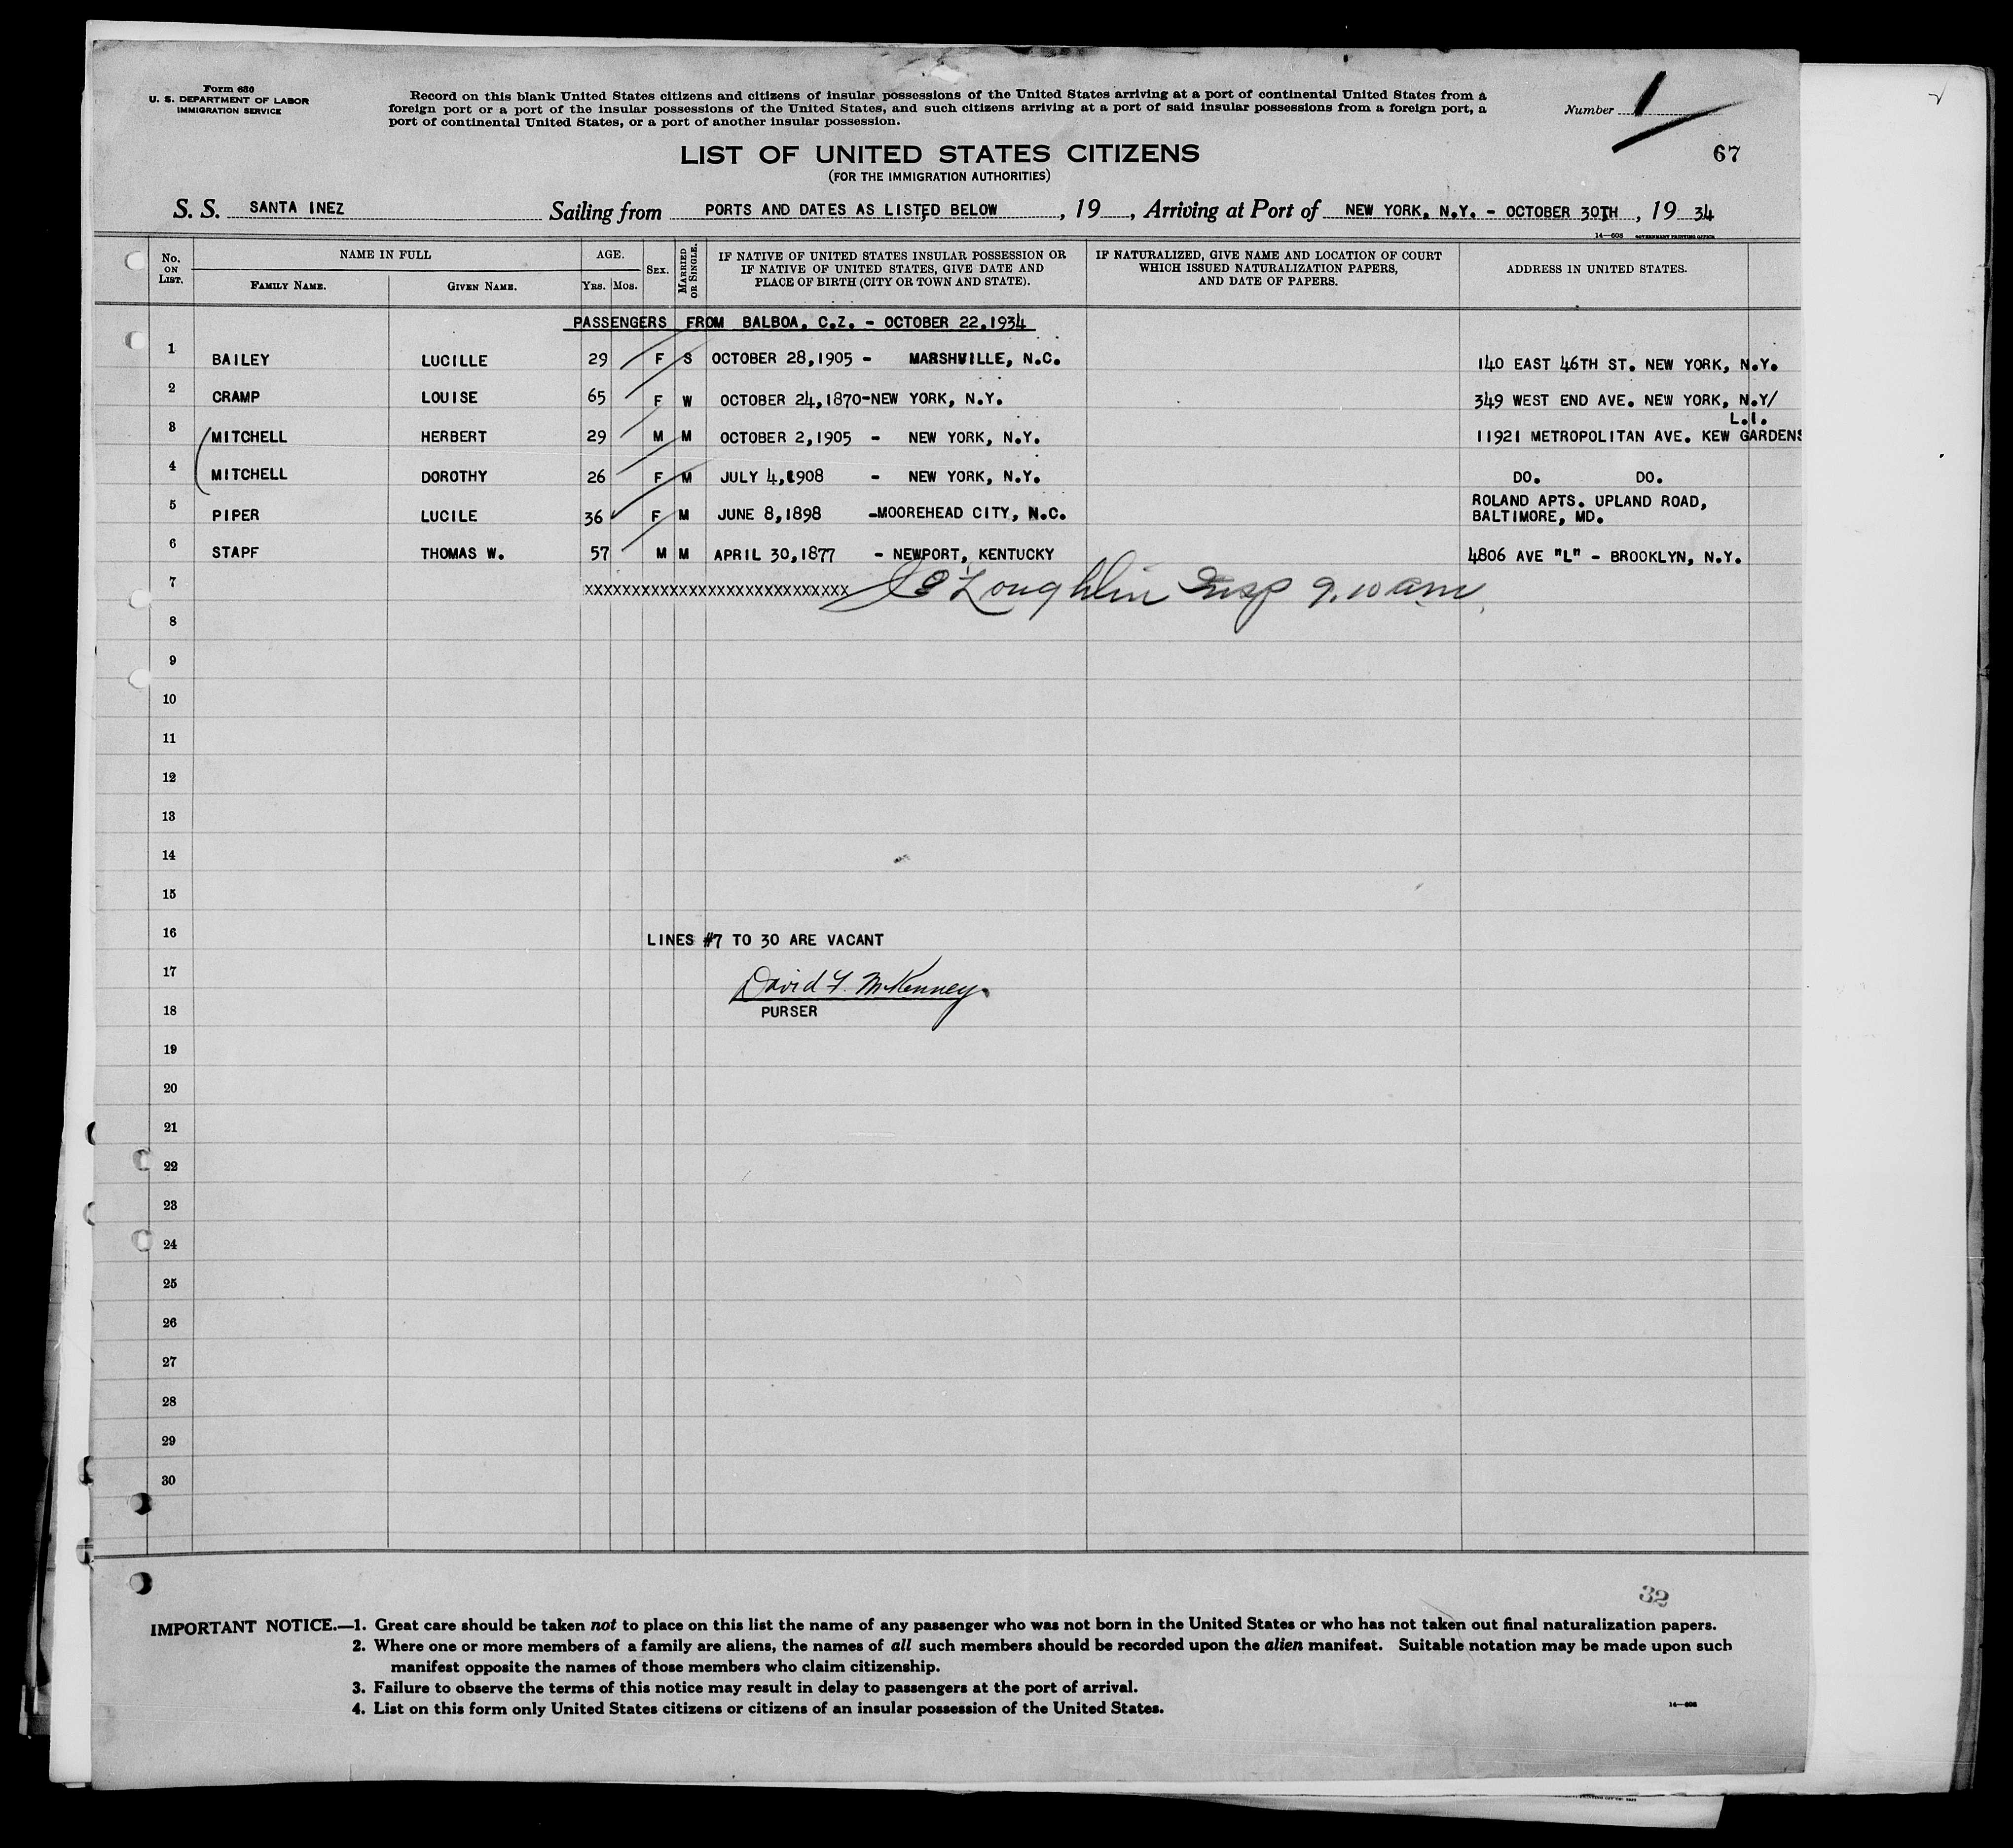 Form 630
U. S. DEPARTMENT OF LABOR
IMMIGRATION SERVICE
Record on this blank United States citizens and citizens of insular possessions of the United States arriving at a port of continental United States from a
foreign port or a port of the insular possessions of the United States, and such citizens arriving at a port of said insular possessions from a foreign port, a
port of continental United States, or a port of another insular possession.
Number 1
67
LIST OF UNITED STATES CITIZENS
(FOR THE IMMIGRATION AUTHORITIES)
S. S. SANTA INEZ Sailing from PORTS AND DATES AS LISTED BELOW , 19 , Arriving at Port of NEW YORK, N.Y. - OCTOBER 30TH , 19 34
14—608 GOVERNMENT PRINTING OFFICE
No. ON LIST. NAME IN FULL FAMILY NAME. GIVEN NAME. AGE. YRS. MOS. SEX. MARRIED OR SINGLE. IF NATIVE OF UNITED STATES INSULAR POSSESSION OR IF NATIVE OF UNITED STATES, GIVE DATE AND PLACE OF BIRTH (CITY OR TOWN AND STATE). IF NATURALIZED, GIVE NAME AND LOCATION OF COURT WHICH ISSUED NATURALIZATION PAPERS, AND DATE OF PAPERS. ADDRESS IN UNITED STATES.
PASSENGERS FROM BALBOA, C.Z. - OCTOBER 22,1934
1 BAILEY LUCILLE 29 F S OCTOBER 28,1905 - MARSHVILLE, N.C. 140 EAST 46TH ST. NEW YORK, N.Y.
2 CRAMP LOUISE 65 F W OCTOBER 24,1870-NEW YORK, N.Y. 349 WEST END AVE. NEW YORK, N.Y/
L.I.
3 MITCHELL HERBERT 29 M M OCTOBER 2,1905 - NEW YORK, N.Y. 11921 METROPOLITAN AVE. KEW GARDENS
4 MITCHELL DOROTHY 26 F M JULY 4,1908 - NEW YORK, N.Y. DO. DO.
5 PIPER LUCILE 36 F M JUNE 8,1898 -MOOREHEAD CITY, N.C. ROLAND APTS. UPLAND ROAD,
BALTIMORE, MD.
6 STAPF THOMAS W. 57 M M APRIL 30,1877 - NEWPORT, KENTUCKY 4806 AVE "L" - BROOKLYN, N.Y.
7 XXXXXXXXXXXXXXXXXXXXXXXXXXXX O'Loughlin Insp 9.10 am
8
9
10
11
12
13
14
15
16 LINES #7 TO 30 ARE VACANT
17 David F. McKenney
18 PURSER
19
20
21
22
23
24
25
26
27
28
29
30
32
IMPORTANT NOTICE.—1. Great care should be taken not to place on this list the name of any passenger who was not born in the United States or who has not taken out final naturalization papers.
2. Where one or more members of a family are aliens, the names of all such members should be recorded upon the alien manifest. Suitable notation may be made upon such
manifest opposite the names of those members who claim citizenship.
3. Failure to observe the terms of this notice may result in delay to passengers at the port of arrival.
4. List on this form only United States citizens or citizens of an insular possession of the United States.
14—608